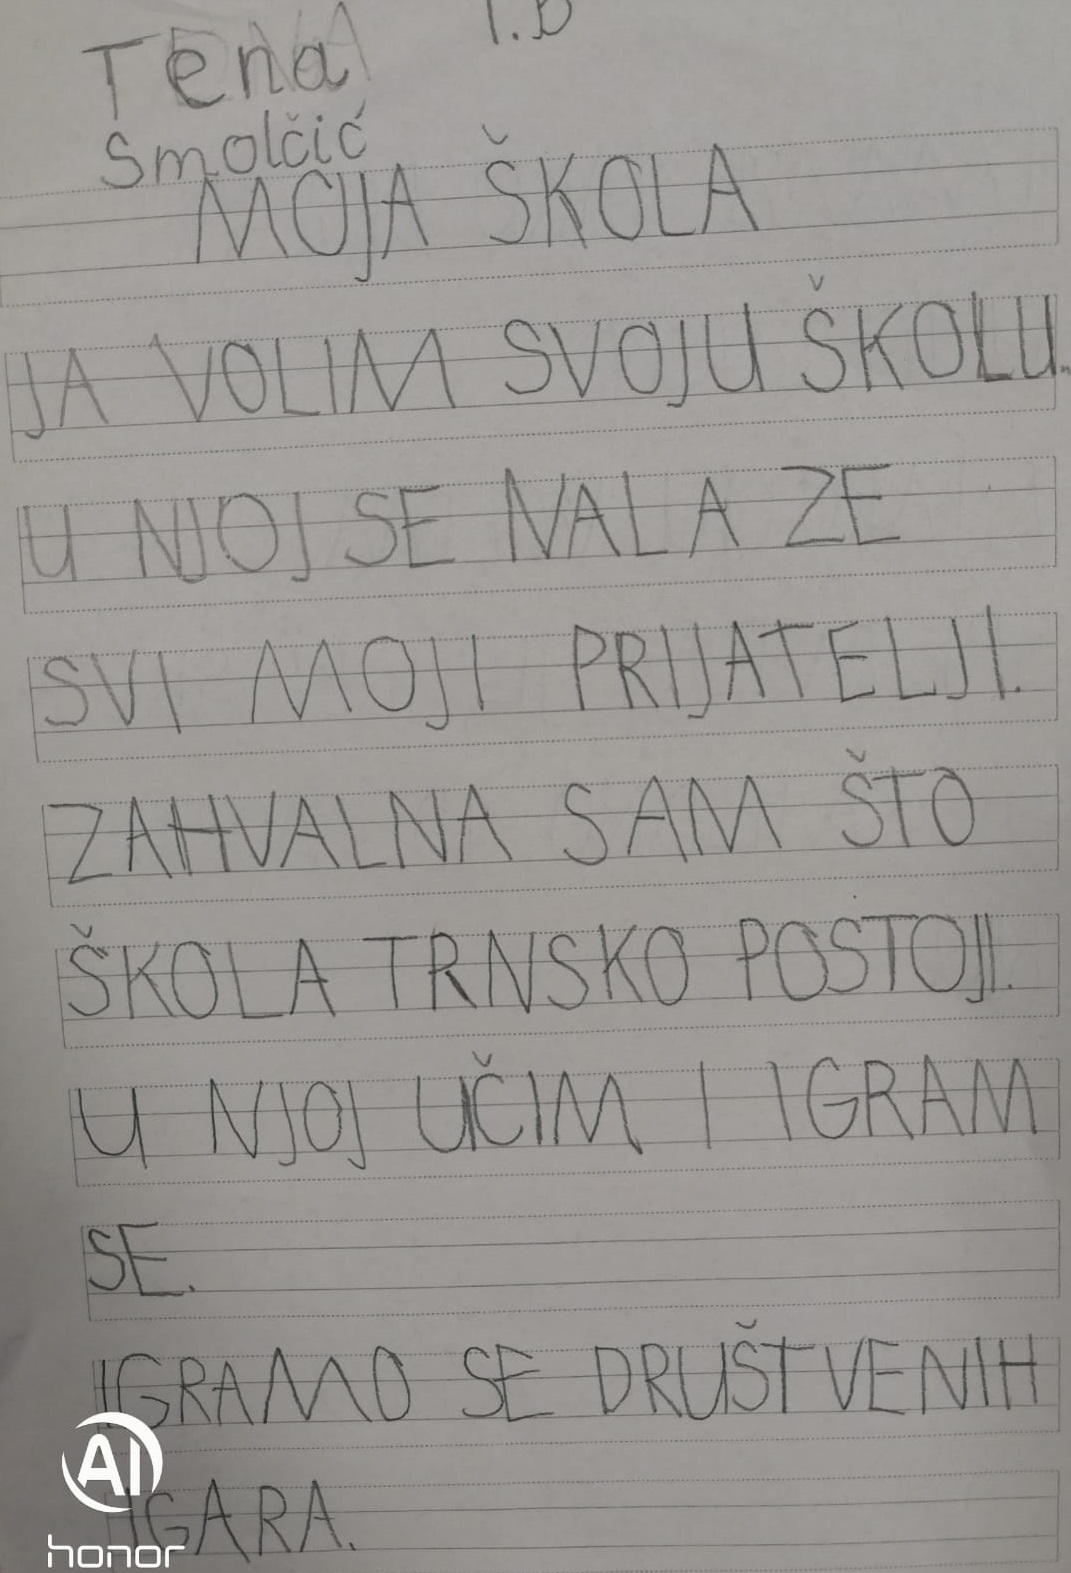 Tena
Smolčić
MOJA ŠKOLA
JA VOLIM SVOJU ŠKOLU.
U NJOJ SE NALAZE
SVI MOJI PRIJATELJI.
ZAHVALNA SAM ŠTO
ŠKOLA TRNSKO POSTOJI.
U NJOJ UČIM I IGRAM
SE.
IGRAMO SE DRUŠTVENIH
IGARA.
AI
honor